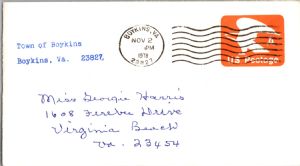 Town of Boykins
Boykins, Va. 23827
BOYKINS, VA
NOV 2
PM
1978
23827
US Postage
Miss Georgie Harris
1608 Ferebee Drive
Virginia Beach
Va. 23454